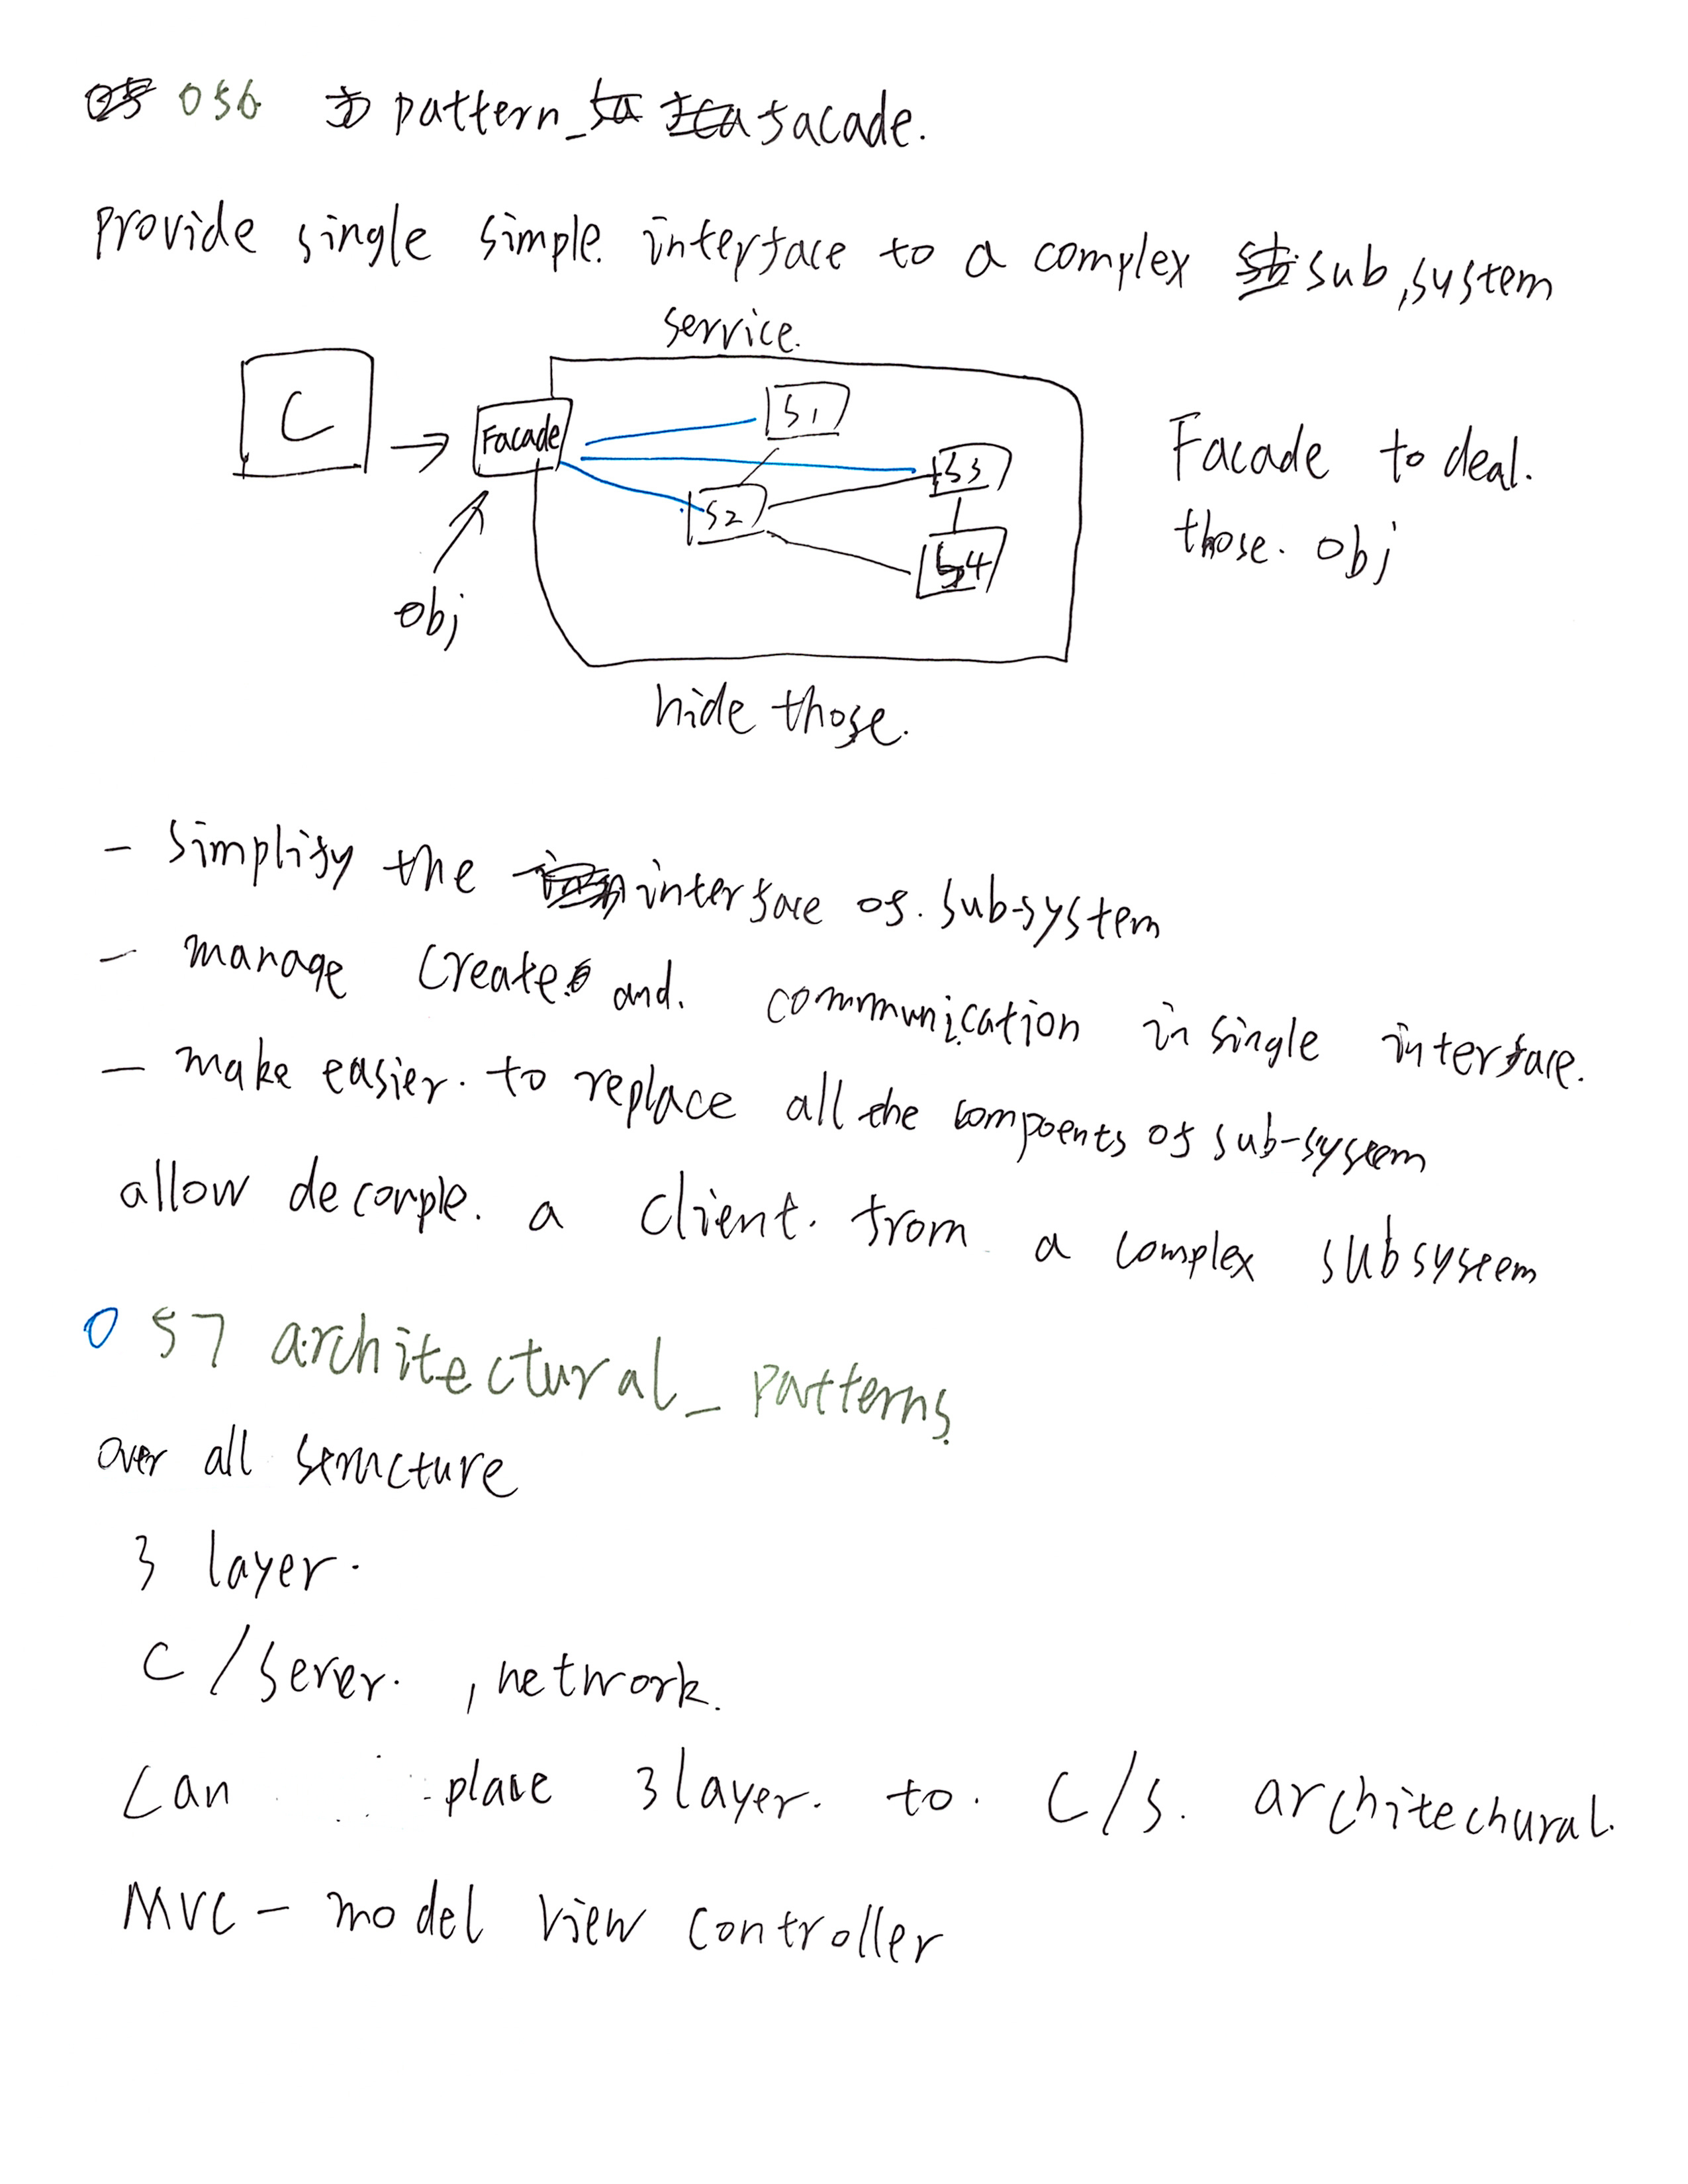 056 pattern_facade.
provide single simple. interface to a complex sub,system
service.
C
Facade
S1
S2
S3
S4
obj
Facade to deal.
those. obj
hide those.
- simplify the interface of. sub-system
- manage create and. communication in single interface.
- make easier. to replace all the compoents of sub-system
allow decouple. a client. from a complex subsystem
057 architectural_patterns
over all structure
3 layer.
C / server. , network.
can place 3 layer. to. C/S. architechural.
MVC - model view controller